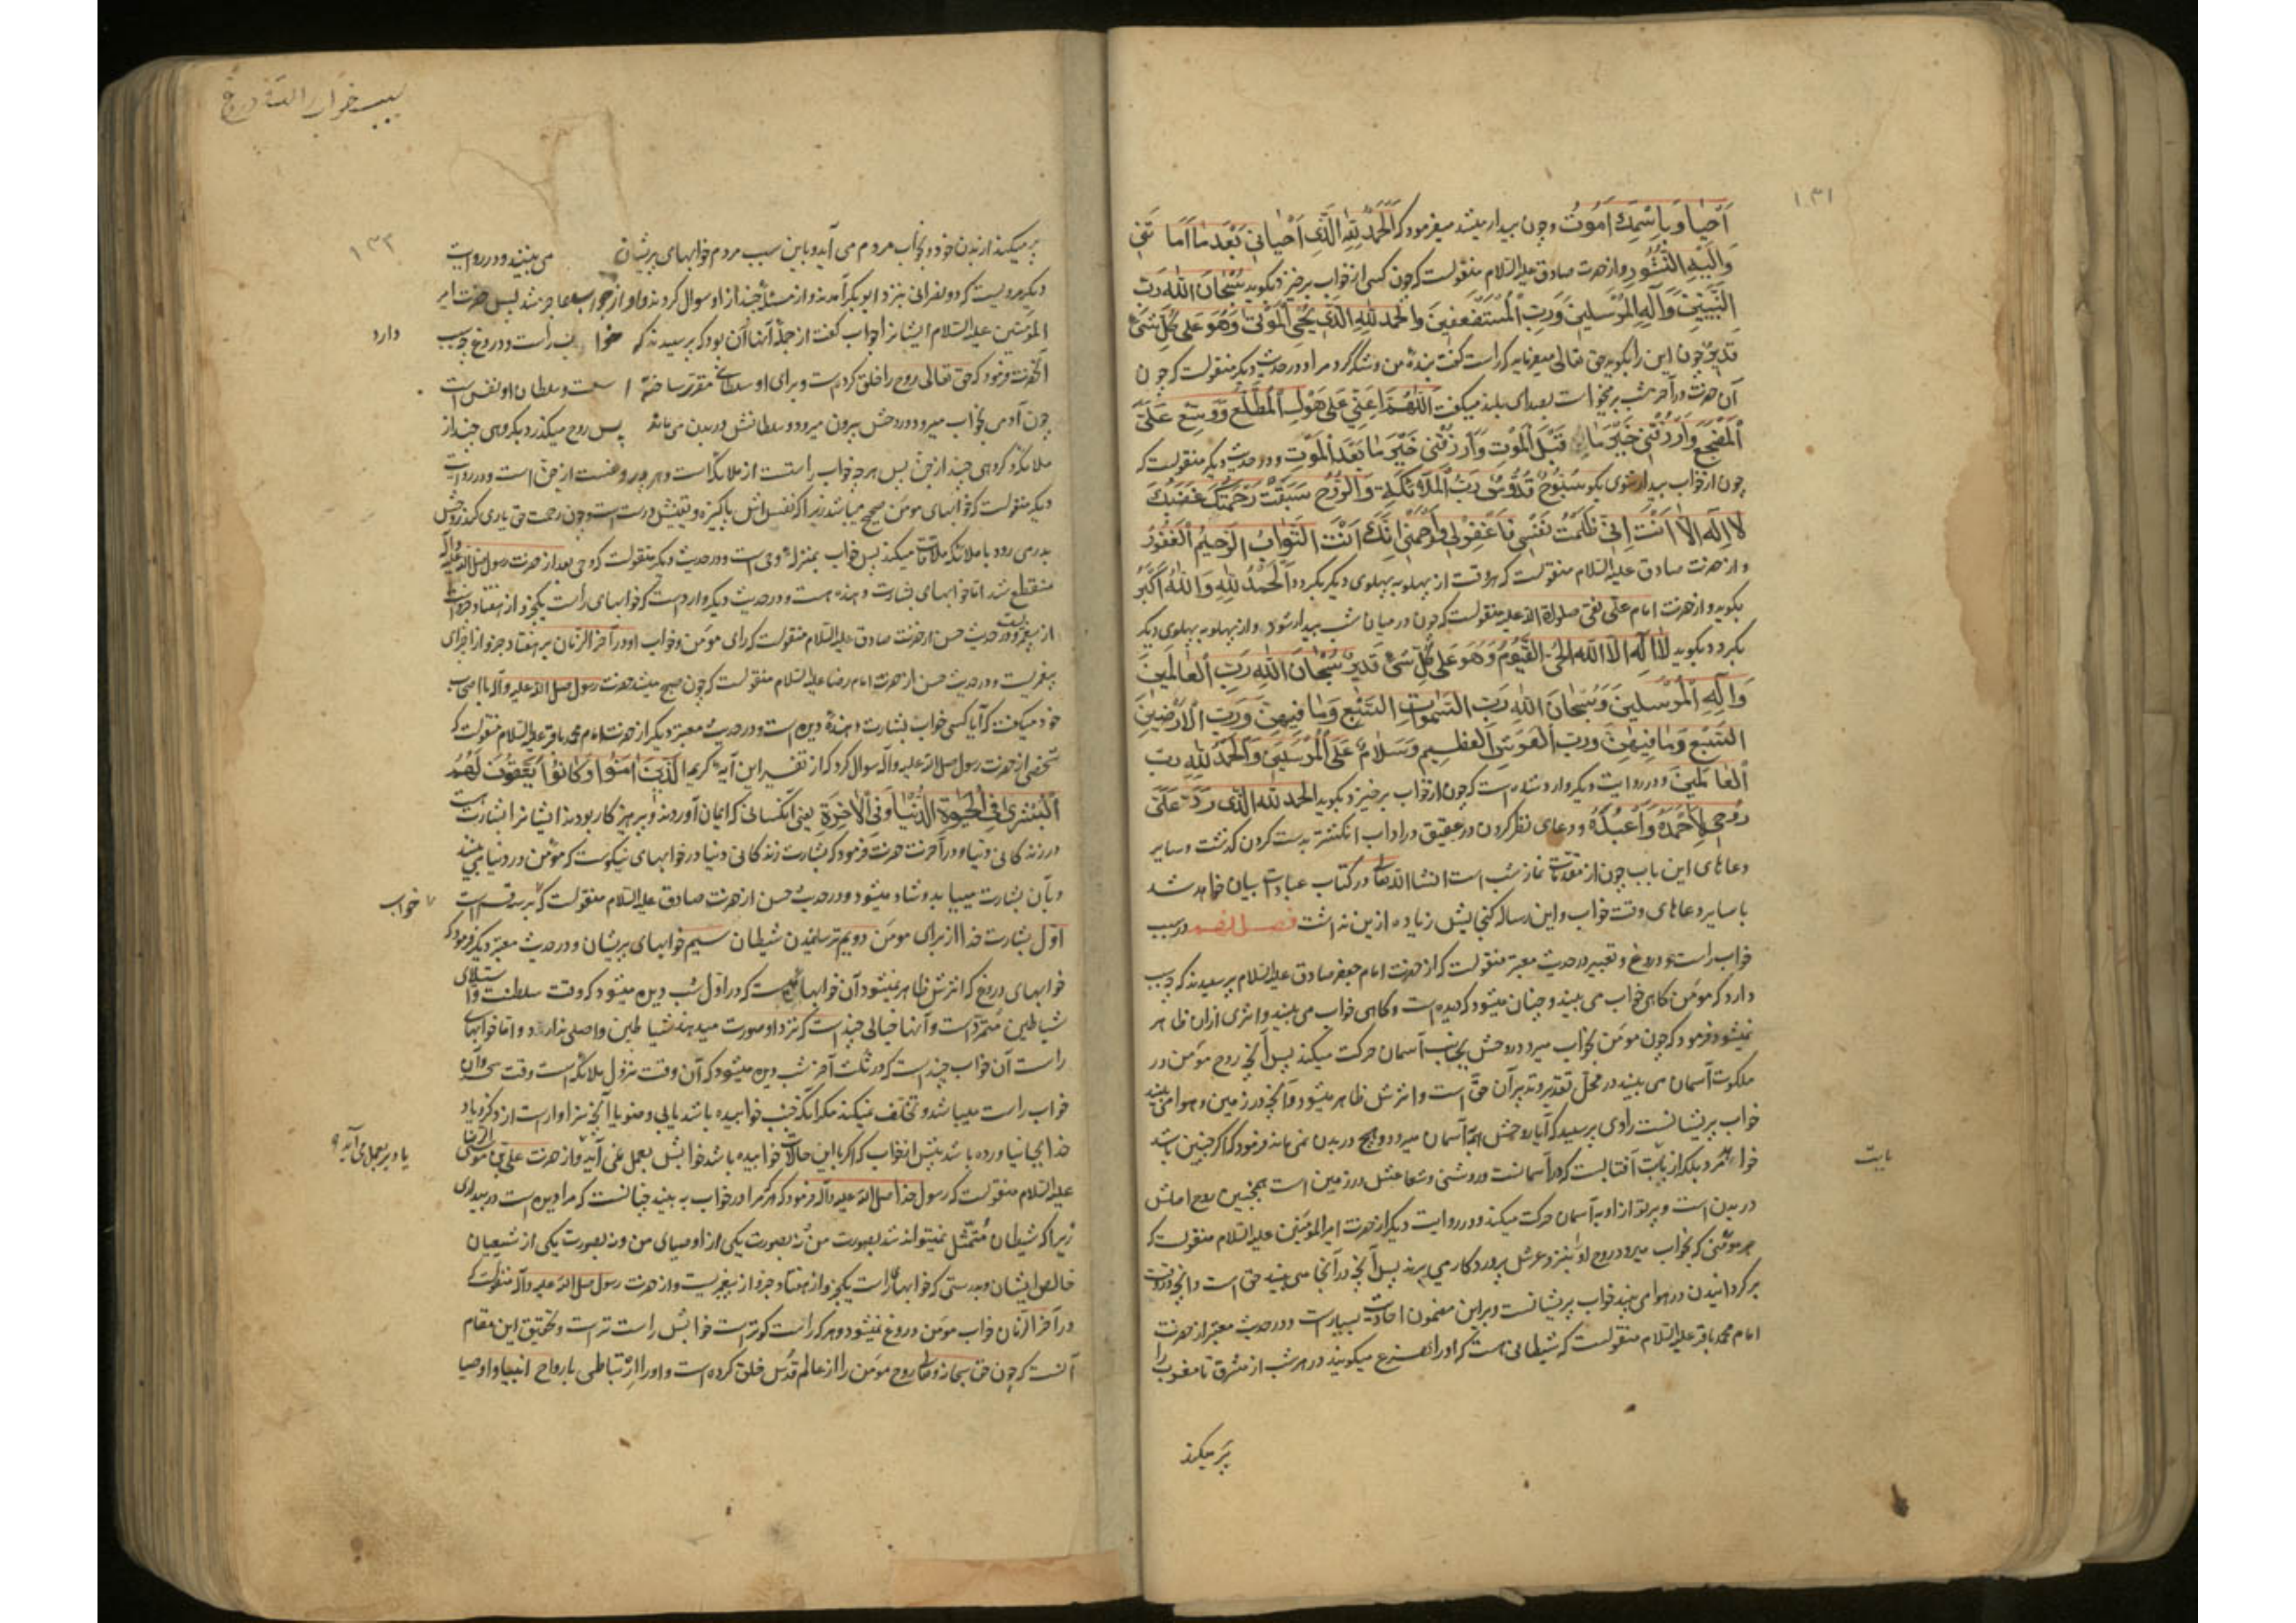 ١٣١
اَحْیٰا وَبِاسْمِكَ اَمُوتُ وچون بیدار میشد میفرمود که اَلْحَمْدُ لِلّٰهِ الَّذِی اَحْیانِی بَعْدَ مٰا اَمٰا تَنِی
وَاِلَیْهِ النُّشُورِ واز حضرت صادق علیه السلام منقولست که چون کسی از خواب برخیزد بگوید سُبْحٰانَ اللّٰهِ رَبِّ
النَّبِیّٖینَ وَاِلٰهِ الْمُرْسَلِینَ وَرَبِّ الْمُسْتَضْعَفِینَ وَالْحَمْدُ لِلّٰهِ الَّذِی یُحْیِی الْمَوْتٰی وَهُوَ عَلٰی کُلِّ شَیْءٍ
قَدِیرٌ چون این را بگوید حق تعالی میفرماید که راست گفت بندهٔ من وشکر کرد مرا ودر حدیث دیگر منقولست که چون
آن حضرت در آخر شب برمیخواست بصدای بلند میگفت اَللّٰهُمَّ اَعِنِّی عَلٰی هَوْلِ الْمُطَّلَعِ وَوَسِّعْ عَلَیَّ
الْمَضْجَعَ وَارْزُقْنِی خَیْرَ مٰا قَبْلَ الْمَوْتِ وَارْزُقْنِی خَیْرَ مٰا بَعْدَ الْمَوْتِ ودر حدیث دیگر منقولست که
چون از خواب بیدار شوی بگو سُبُّوحٌ قُدُّوسٌ رَبُّ الْمَلاٰئِکَةِ وَالرُّوحِ سَبَقَتْ رَحْمَتُكَ غَضَبَكَ
لاٰ اِلٰهَ اِلاّٰ اَنْتَ اِنِّی ظَلَمْتُ نَفْسِی فَاغْفِرْلِی وَارْحَمْنِی اِنَّكَ اَنْتَ التَّوّٰابُ الرَّحِیمُ الْغَفُورُ
واز حضرت صادق علیه السلام منقولست که هر وقت از پهلو به پهلوی دیگر بگردد اَلْحَمْدُ لِلّٰهِ وَاللّٰهُ اَکْبَرُ
بگوید واز حضرت امام علی نقی صلوات الله علیه منقولست که چون در میان شب بیدار شود واز پهلو به پهلوی دیگر
بگردد بگوید لاٰ اِلٰهَ اِلاَّ اللّٰهُ الْحَیُّ الْقَیُّومُ وَهُوَ عَلٰی کُلِّ شَیْءٍ قَدِیرٌ سُبْحٰانَ اللّٰهِ رَبِّ الْعٰالَمِینَ
وَاِلٰهِ الْمُرْسَلِینَ وَسُبْحٰانَ اللّٰهِ رَبِّ السَّمٰوٰاتِ السَّبْعِ وَمٰا فِیهِنَّ وَرَبِّ الْاَرَضِینَ
السَّبْعِ وَمٰا فِیهِنَّ وَرَبِّ الْعَرْشِ الْعَظِیمِ وَسَلاٰمٌ عَلَی الْمُرْسَلِینَ وَالْحَمْدُ لِلّٰهِ رَبِّ
الْعٰالَمِینَ ودر روایت دیگر وارد شده است که چون از خواب برخیزد بگوید الحمد لله الَّذی رَدَّ عَلَیَّ
رُوحِی لِاَحْمَدَهُ وَاَعْبُدَهُ ودعای نظر کردن در عقیق در آداب انگشتر بدست کردن گذشت وسایر
دعاهای این باب چون از مقدّمات نماز شب است انشاالله تعالی در کتاب عبادات بیان خواهد شد
با سایر دعاهای وقت خواب واین رساله گنجایش زیاده از این نداشت فصل در سبب
خواب راست ودروغ وتعبیر در حدیث معتبر منقولست که از حضرت امام جعفر صادق علیه السلام پرسیدند که چه سبب
دارد که مومن گاهی خواب می بیند وچنان میشود که دیده است وگاهی خواب می بیند واثری ازان ظاهر
نمیشود فرمود که چون مومن بخواب میرود روحش بجانب آسمان حرکت میکند پس آنچه روح مومن در
ملکوت آسمان می بیند در محل تقدیر وتدبیر آن حقّ است واثرش ظاهر میشود وآنچه در زمین وهوا می بیند
خواب پریشانست راوی پرسید که آیا روحش همه بآسمان میرود وهیچ در بدن نمی ماند فرمود که اگر چنین باشد
خواهد مرد بلکه از بابت آفتابست که در آسمانست وروشنی وشعاعش در زمین است همچنین روح اصلش
بابت
در بدن است وپرتو از او به آسمان حرکت میکند ودر روایت دیگر از حضرت امیر المؤمنین علیه السلام منقولست که
هر مؤمنی که بخواب میرود روح او را بنزد عرش پروردگار می برند پس آنچه در آنجا می بیند حق است وانچه در وقت
برگردانیدن در هوا می بیند خواب پریشانست وبر این مضمون احادیث بسیارست ودر حدیث معتبر از حضرت
امام محمد باقر علیه السلام منقولست که شیطانی هست که او را هزع میگویند در هر شب از مشرق تا مغرب را
پر میکند
سبب خواب راست ودروغ
١٣٢
پر میکند از بدن خود وبخواب مردم می آید وباین سبب مردم خوابهای پریشان می بینند ودر روایت
دیگر مرویست که دو نصرانی بنزد ابوبکر آمدند واز مسئلهٔ چند از او سوال کردند واو از جواب عاجز شد پس حضرت امیر
المؤمنین علیه السلام ایشانرا جواب گفت از جملهٔ آنها آن بود که پرسیدند که خواب راست ودروغ چه سبب
دارد
آنحضرت فرمود که حق تعالی روح را خلق کرده است وبرای او سلطانی مقرّر ساخته است وسلطان او نفس است
چون آدمی بخواب میرود روحش بیرون میرود وسلطانش در بدن می ماند پس روح میگذرد بگروهی چند از
ملائکه وگروهی چند از جن پس هرچه خواب راستست از ملائکه است وهرچه دروغست از جن است ودر روایت
دیگر منقولست که خوابهای مومن صحیح میباشد زیرا که نفس اش پاکیزه ویقینش درست است وچون رحمت حق یاری کند روحش
بدر می رود با ملائکه ملاقات میکند پس خواب بمنزلهٔ وحی است ودر حدیث دیگر منقولست که وحی بعد از حضرت رسول صلی الله علیه وآله
منقطع شد امّا خوابهای بشارت دهنده هست ودر حدیث دیگر وارد است که خوابهای راست یکجزو از هفتاد جزو است
از پیغمبری ودر حدیث حسن از حضرت صادق علیه السلام منقولست که رای مومن وخواب او در آخر الزمان بر هفتاد جزو از اجزای
پیغمبریست ودر حدیث حسن از حضرت امام رضا علیه السلام منقولست که چون صبح میشد حضرت رسول صلی الله علیه وآله با اصحاب
خود میگفت که آیا کسی خواب بشارت دهندهٔ دیده است ودر حدیث معتبر دیگر از حضرت امام محمد باقر علیه السلام منقولست که
شخصی از حضرت رسول صلی الله علیه وآله سوال کرد که از تفسیر این آیهٔ کریمه الَّذِینَ اٰمَنُوا وَکٰانُوا یَتَّقُونَ لَهُمُ
الْبُشْرٰی فِی الْحَیٰوةِ الدُّنْیٰا وَفِی الْاٰخِرَةِ یعنی آنکسانی که ایمان آوردند وپرهیزکار بودند ایشانرا بشارت است
در زندگانی دنیا ودر آخرت حضرت فرمود که بشارت زندگانی دنیا در خوابهای نیکوست که مؤمن در دنیا می بیند
وبآن بشارت مییابد وشاد میشود ودر حدیث حسن از حضرت صادق علیه السلام منقولست که بر سه قسم است
خواب
اوّل بشارت خدا از برای مومن دویم ترسانیدن شیطان سیم خوابهای پریشان ودر حدیث معتبر دیگر فرمود که
خوابهای دروغ که اثرش ظاهر نمیشود آن خوابهائیست که در اوّل شب دیده میشود که وقت سلطنت واستیلای
شیاطین متمرّد است وآنها خیالی چند است که نزد او صورت میدهند شیاطین واصلی ندارد وامّا خوابهای
راست آن خواب چند است که در ثلث آخر شب دیده میشود که آن وقت نزول ملائکه است وقت سحر وآن
خواب راست میباشد وتخلّف نمیکند مگر آنکه جنب خوابیده باشد یا بی وضو یا آنچه سزاوار است از ذکر ویاد
خدا بجا نیاورده باشد پیش از خواب که اگر با این حالات خوابیده باشد خوابش بعمل نمی آید واز حضرت علی بن موسی الرضا
یا دیر بعمل می آید
علیه السلام منقولست که رسول خدا صلی الله علیه وآله فرمود که هر که مرا در خواب به بیند چنانست که مرا دیده است در بیداری
زیرا که شیطان متمثّل نمیتواند شد بصورت من ونه بصورت یکی از اوصیای من ونه بصورت یکی از شیعیان
خالص ایشان وبدرستی که خوابهای راست یکجزو از هفتاد جزو از پیغمبریست واز حضرت رسول صلی الله علیه وآله منقولست که
در آخر الزّمان خواب مؤمن دروغ نمیشود وهر که راست گوتر است خوابش راست تر است وتحقیق این مقام
آنست که چون حق سبحانه وتعالی روح مومن را از عالم قدس خلق کرده است واو را ارتباطی با رواح انبیا واوصیا